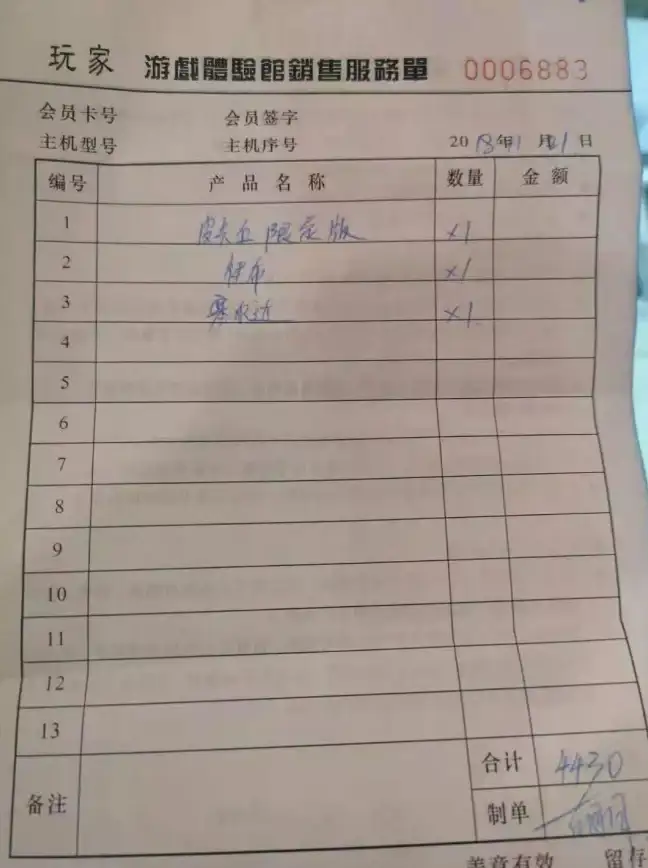 玩家 游戲體驗館銷售服務單 0006883
会员卡号 会员签字
主机型号 主机序号 2018年11月21日
编号 产品名称 数量 金额
1 皮卡丘限定版 x1
2 伊布 x1
3 塞尔达 x1
4
5
6
7
8
9
10
11
12
13
备注
合计 4430
制单
盖章有效 留存